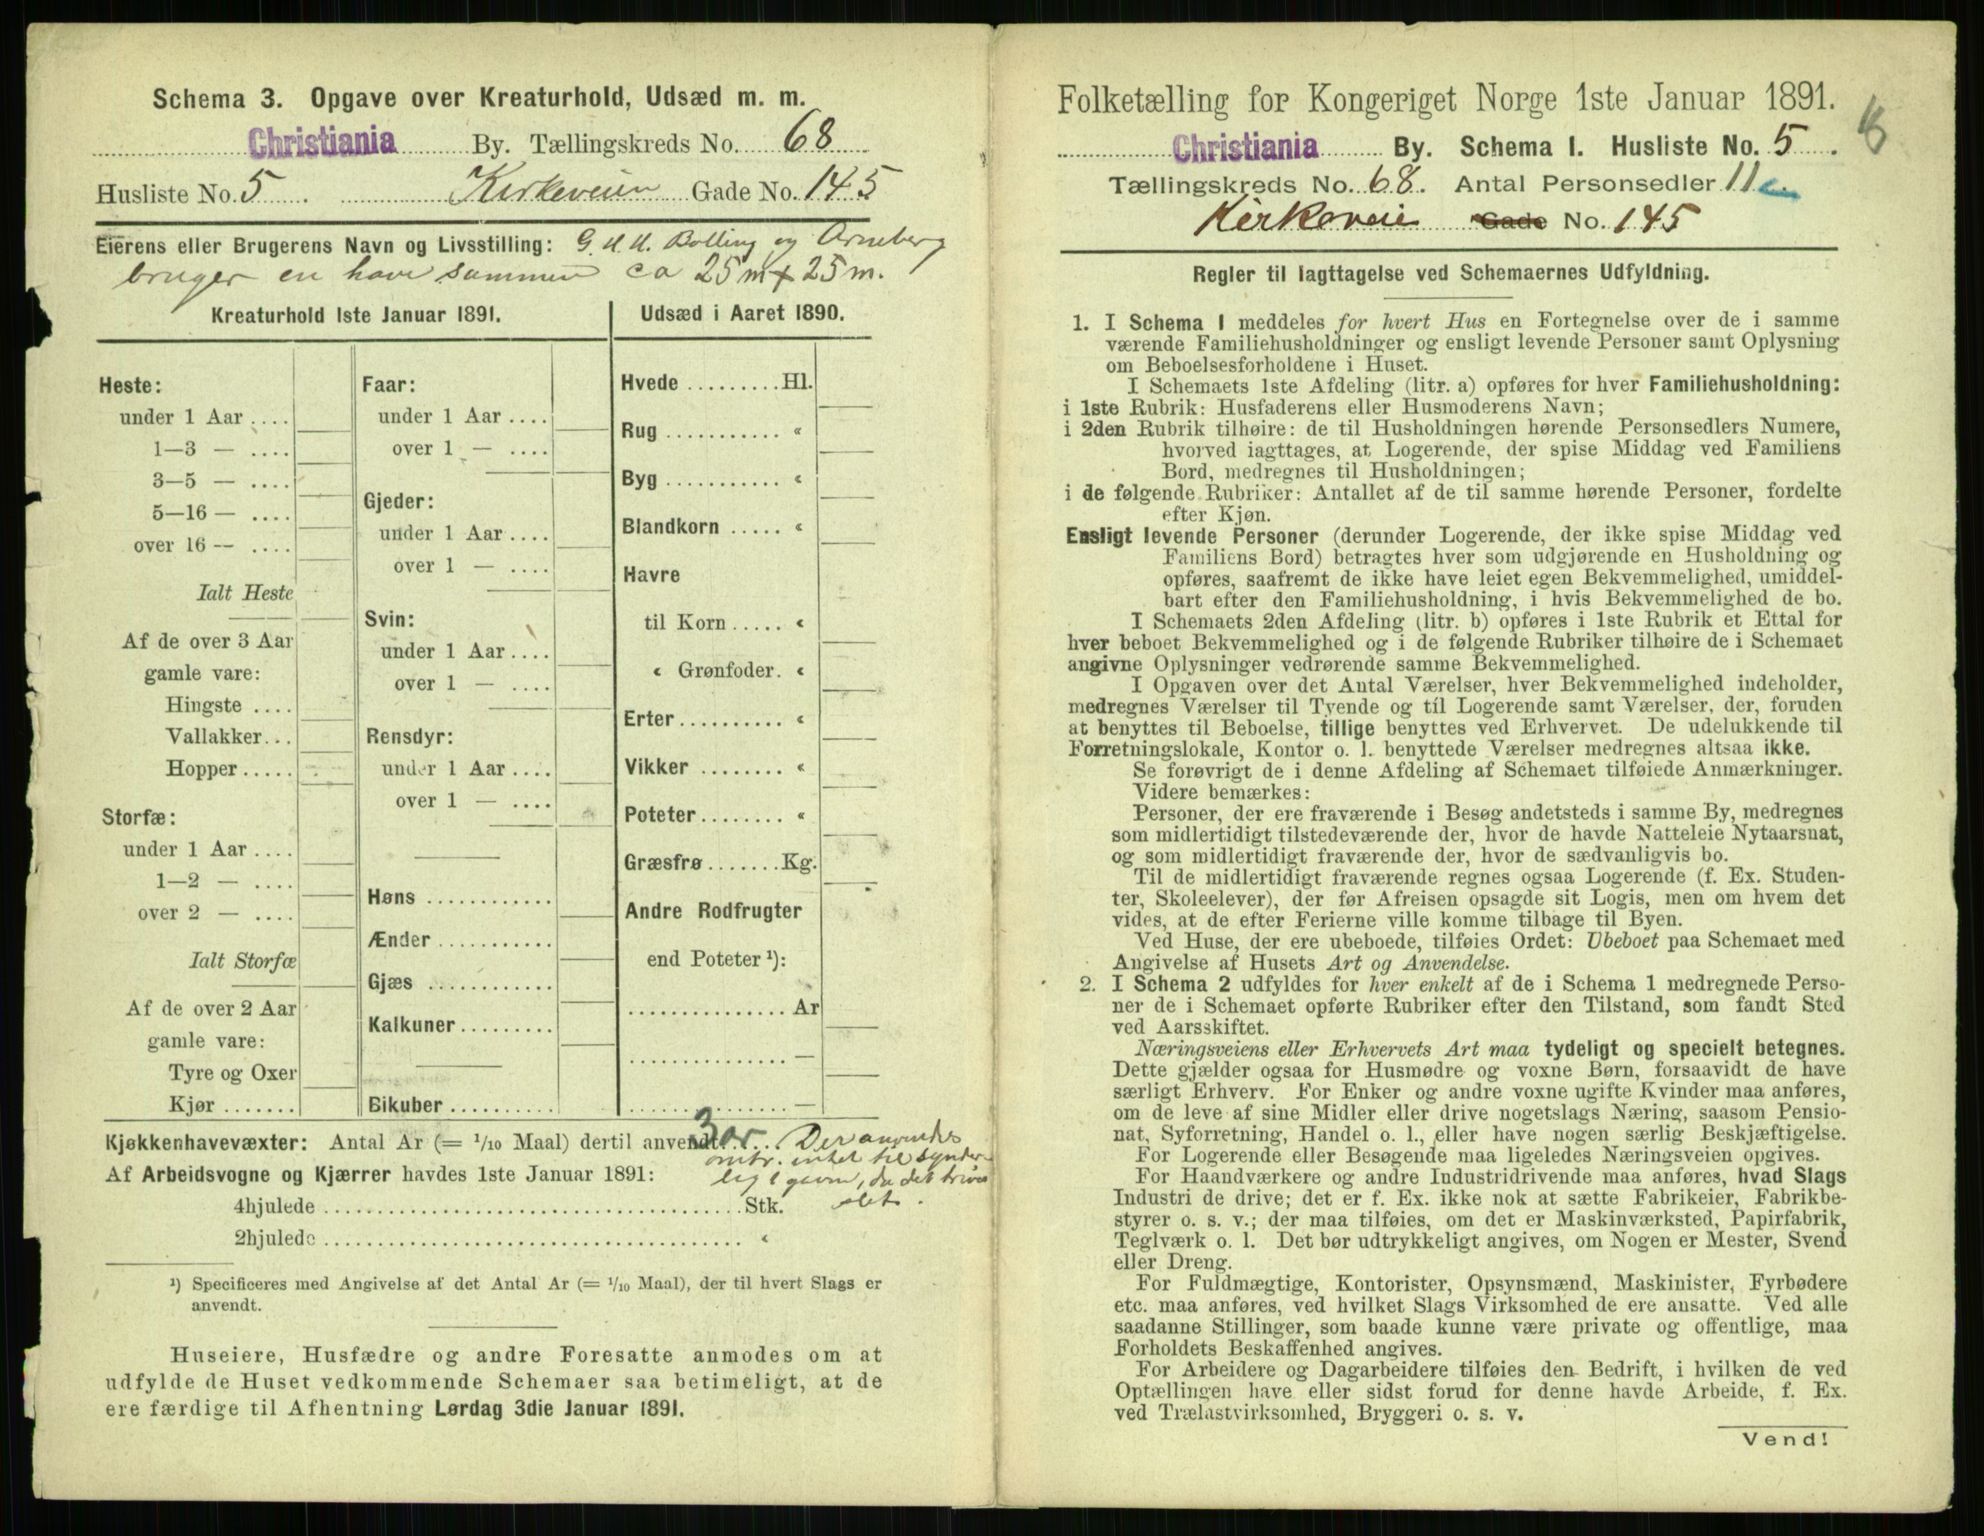 Schema 3. Opgave over Kreaturhold, Udsæd m. m.
Christiania By. Tællingskreds No. 68
Husliste No. 5 Kirkeveien Gade No. 145
Eierens eller Brugerens Navn og Livsstilling: G. H. H. Bolling og Arneberg
bruger en have sammen ca 25 m x 25 m.
Kreaturhold 1ste Januar 1891.
Heste:
under 1 Aar ....
1—3 — ....
3—5 — ....
5—16 — ....
over 16 — ....
Ialt Heste
Af de over 3 Aar
gamle vare:
Hingste ....
Vallakker...
Hopper.....
Storfæ:
under 1 Aar ....
1—2 — ....
over 2 — ....
Ialt Storfæ
Af de over 2 Aar
gamle vare:
Tyre og Oxer
Kjør .......
Faar:
under 1 Aar ....
over 1 — ....
Gjeder:
under 1 Aar ....
over 1 — ....
Svin:
under 1 Aar ....
over 1 — ....
Rensdyr:
under 1 Aar ....
over 1 — ....
Høns ............
Ænder ...........
Gjæs ............
Kalkuner.........
Bikuber ..........
Udsæd i Aaret 1890.
Hvede .........Hl.
Rug ........... «
Byg ........... «
Blandkorn ..... «
Havre
til Korn ..... «
« Grønfoder. «
Erter .......... «
Vikker ........ «
Poteter ........ «
Græsfrø .......Kg.
Andre Rodfrugter
end Poteter ¹):
............... Ar
............... —
............... —
Kjøkkenhavevæxter: Antal Ar (= 1/10 Maal) dertil anvendt 3 ar. Der anvendes
omtr. intet til synder-
Af Arbeidsvogne og Kjærrer havdes 1ste Januar 1891: lig gavn, da det trives
4hjulede ........ Stk. slet.
2hjulede ........ «
¹) Specificeres med Angivelse af det Antal Ar (= 1/10 Maal), der til hvert Slags er
anvendt.
Huseiere, Husfædre og andre Foresatte anmodes om at
udfylde de Huset vedkommende Schemaer saa betimeligt, at de
ere færdige til Afhentning Lørdag 3die Januar 1891.
Folketælling for Kongeriget Norge 1ste Januar 1891.
Christiania By. Schema 1. Husliste No. 5.
Tællingskreds No. 68. Antal Personsedler 11
Kirkeveie Gade No. 145
Regler til Iagttagelse ved Schemaernes Udfyldning.
1. I Schema 1 meddeles for hvert Hus en Fortegnelse over de i samme
værende Familiehusholdninger og ensligt levende Personer samt Oplysning
om Beboelsesforholdene i Huset.
I Schemaets 1ste Afdeling (litr. a) opføres for hver Familiehusholdning:
i 1ste Rubrik: Husfaderens eller Husmoderens Navn;
i 2den Rubrik tilhøire: de til Husholdningen hørende Personsedlers Numere,
hvorved iagttages, at Logerende, der spise Middag ved Familiens
Bord, medregnes til Husholdningen;
i de følgende Rubriker: Antallet af de til samme hørende Personer, fordelte
efter Kjøn.
Ensligt levende Personer (derunder Logerende, der ikke spise Middag ved
Familiens Bord) betragtes hver som udgjørende en Husholdning og
opføres, saafremt de ikke have leiet egen Bekvemmelighed, umiddel-
bart efter den Familiehusholdning, i hvis Bekvemmelighed de bo.
I Schemaets 2den Afdeling (litr. b) opføres i 1ste Rubrik et Ettal for
hver beboet Bekvemmelighed og i de følgende Rubriker tilhøire de i Schemaet
angivne Oplysninger vedrørende samme Bekvemmelighed.
I Opgaven over det Antal Værelser, hver Bekvemmelighed indeholder,
medregnes Værelser til Tyende og til Logerende samt Værelser, der, foruden
at benyttes til Beboelse, tillige benyttes ved Erhvervet. De udelukkende til
Forretningslokale, Kontor o. l. benyttede Værelser medregnes altsaa ikke.
Se forøvrigt de i denne Afdeling af Schemaet tilføiede Anmærkninger.
Videre bemærkes:
Personer, der ere fraværende i Besøg andetsteds i samme By, medregnes
som midlertidigt tilstedeværende der, hvor de havde Natteleie Nytaarsnat,
og som midlertidigt fraværende der, hvor de sædvanligvis bo.
Til de midlertidigt fraværende regnes ogsaa Logerende (f. Ex. Studen-
ter, Skoleelever), der før Afreisen opsagde sit Logis, men om hvem det
vides, at de efter Ferierne ville komme tilbage til Byen.
Ved Huse, der ere ubeboede, tilføies Ordet: Ubeboet paa Schemaet med
Angivelse af Husets Art og Anvendelse.
2. I Schema 2 udfyldes for hver enkelt af de i Schema 1 medregnede Perso-
ner de i Schemaet opførte Rubriker efter den Tilstand, som fandt Sted
ved Aarsskiftet.
Næringsveiens eller Erhvervets Art maa tydeligt og specielt betegnes.
Dette gjælder ogsaa for Husmødre og voxne Børn, forsaavidt de have
særligt Erhverv. For Enker og andre voxne ugifte Kvinder maa anføres,
om de leve af sine Midler eller drive nogetslags Næring, saasom Pensio-
nat, Syforretning, Handel o. l., eller have nogen særlig Beskjæftigelse.
For Logerende eller Besøgende maa ligeledes Næringsveien opgives.
For Haandværkere og andre Industridrivende maa anføres, hvad Slags
Industri de drive; det er f. Ex. ikke nok at sætte Fabrikeier, Fabrikbe-
styrer o. s. v.; der maa tilføies, om det er Maskinværksted, Papirfabrik,
Teglværk o. l. Det bør udtrykkeligt angives, om Nogen er Mester, Svend
eller Dreng.
For Fuldmægtige, Kontorister, Opsynsmænd, Maskinister, Fyrbødere
etc. maa anføres, ved hvilket Slags Virksomhed de ere ansatte. Ved alle
saadanne Stillinger, som baade kunne være private og offentlige, maa
Forholdets Beskaffenhed angives.
For Arbeidere og Dagarbeidere tilføies den Bedrift, i hvilken de ved
Optællingen have eller sidst forud for denne havde Arbeide, f. Ex.
ved Trælastvirksomhed, Bryggeri o. s. v.
Vend!